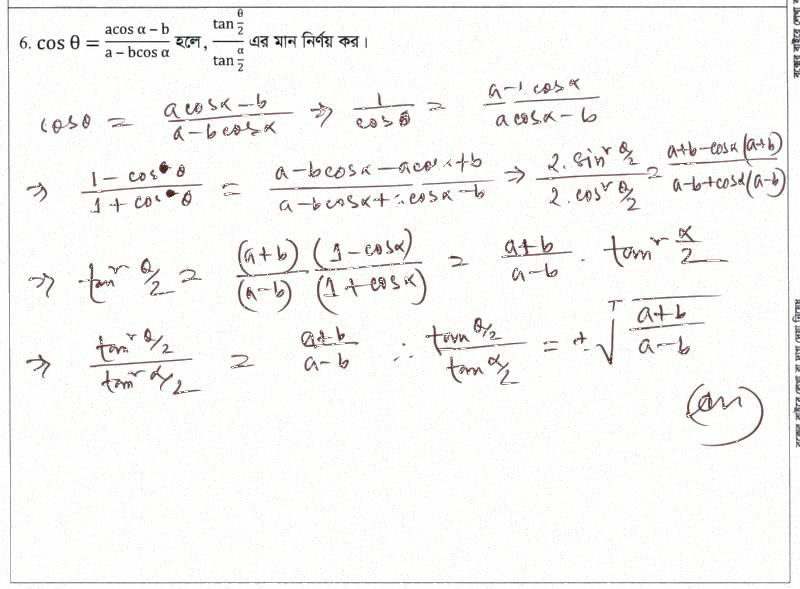 6. cos θ = (acos α − b)/(a − bcos α) হলে, (tan θ/2)/(tan α/2) এর মান নির্ণয় কর।
cosθ = (a cosα − b)/(a − b cosα) ⇒ 1/cosθ = (a − cosα)/(a cosα − b)
⇒ (1 − cosθ)/(1 + cosθ) = (a − b cosα − a cosα + b)/(a − b cosα + cosα − b) ⇒ (2. sin² θ/2)/(2. cos² θ/2) = (a+b − cosα (a+b))/(a−b + cosα (a−b))
⇒ tan² θ/2 = ((a+b) (1 − cosα))/((a−b) (1 + cosα)) = (a+b)/(a−b) . tan² α/2
⇒ (tan² θ/2)/(tan² α/2) = (a+b)/(a−b) ∴ (tan θ/2)/(tan α/2) = ± √((a+b)/(a−b))
(An)